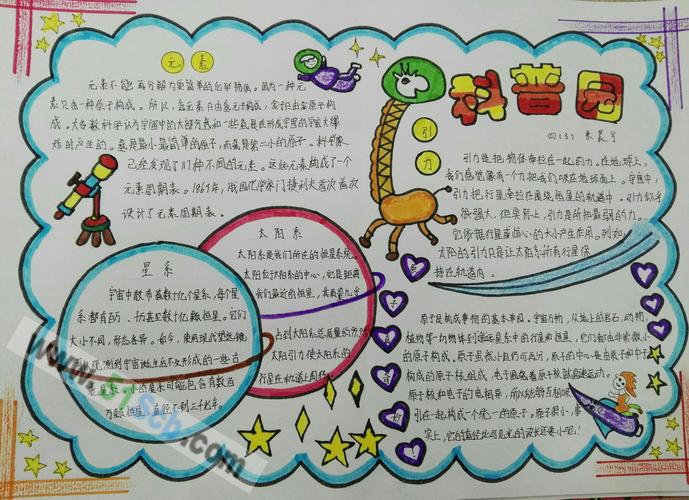 元素
元素不能再分解为更简单的化学物质。因为一种元
素只由一种原子构成。所以,氢元素只由氢元子构成,金只由金原子构
成。大多数科学认为宇宙中的大部分氢和一些氦是在形成宇宙的宇宙大爆
炸时产生的。氢是最小最简单的原子,而氦是第二小的原子。科学家
已经发现了117种不同的元素。这些元素构成了一个
元素周期表。1869年,俄国化学家门捷列夫首次
设计了元素周期表。
科普园
四(3)
引力
引力是把物体牵拉在一起的力。在地球上,
我们感觉像有一个力把我们吸在地球表面上。宇宙中,
引力把行星牵拉在围绕恒星的轨道中。引力似乎
很强大,但实际上,引力是所知最弱的力。
它依据行星或恒心的大小产生作用。例如,
太阳的引力只是让太阳系所有行星保
持在轨道内。
太阳系
太阳系是我们所在的恒星系统。
太阳位于太阳系的中心,它是距离
我们最近的恒星,其质量几乎
占到太阳系总质量的
太阳引力使太阳系的
行星在轨道上
星系
宇宙中散布着数十亿个星系,每个星
系都有百万甚至数十亿颗恒星。它们
大小不同,形态各异。如今,使用现代望远镜
可以观测到宇宙诞生后不久形成的一些古
老星系。小的星系可能包含有数百
万颗恒星,直径不到三千光年。
原子
原子是构成事物的基本单园。宇宙万物,从地上的岩石、动物、
植物等一切物体到遥远星系中的行星和恒星,它们都由非常微小
的原子构成。原子虽微小但仍可再分,原子的中心是由质子和中子
构成的原子核组成,电子围绕着原子核高速运动。
原子核和电子的电相异,所以能够互相吸
引在一起,构成一个完一的原子。原子很小,事
实上,它的直径比可见光的波长还要小呢!
www.
Sch.com